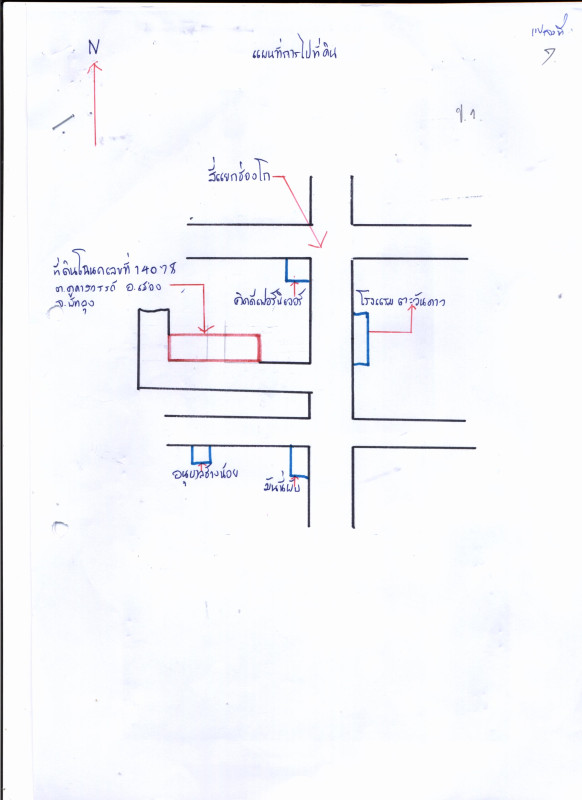 แปลงที่
7
N
แผนที่การไปที่ดิน
ข.1.
สี่แยกช่องโก
ที่ดินโฉนดเลขที่ 14078
ต.คูหาสวรรค์ อ.เมือง
จ.พัทลุง
คิดดีเฟอร์นิเจอร์
โรงแรม ตะวันดาว
อนุบาลช้างน้อย
มันนี่ผับ